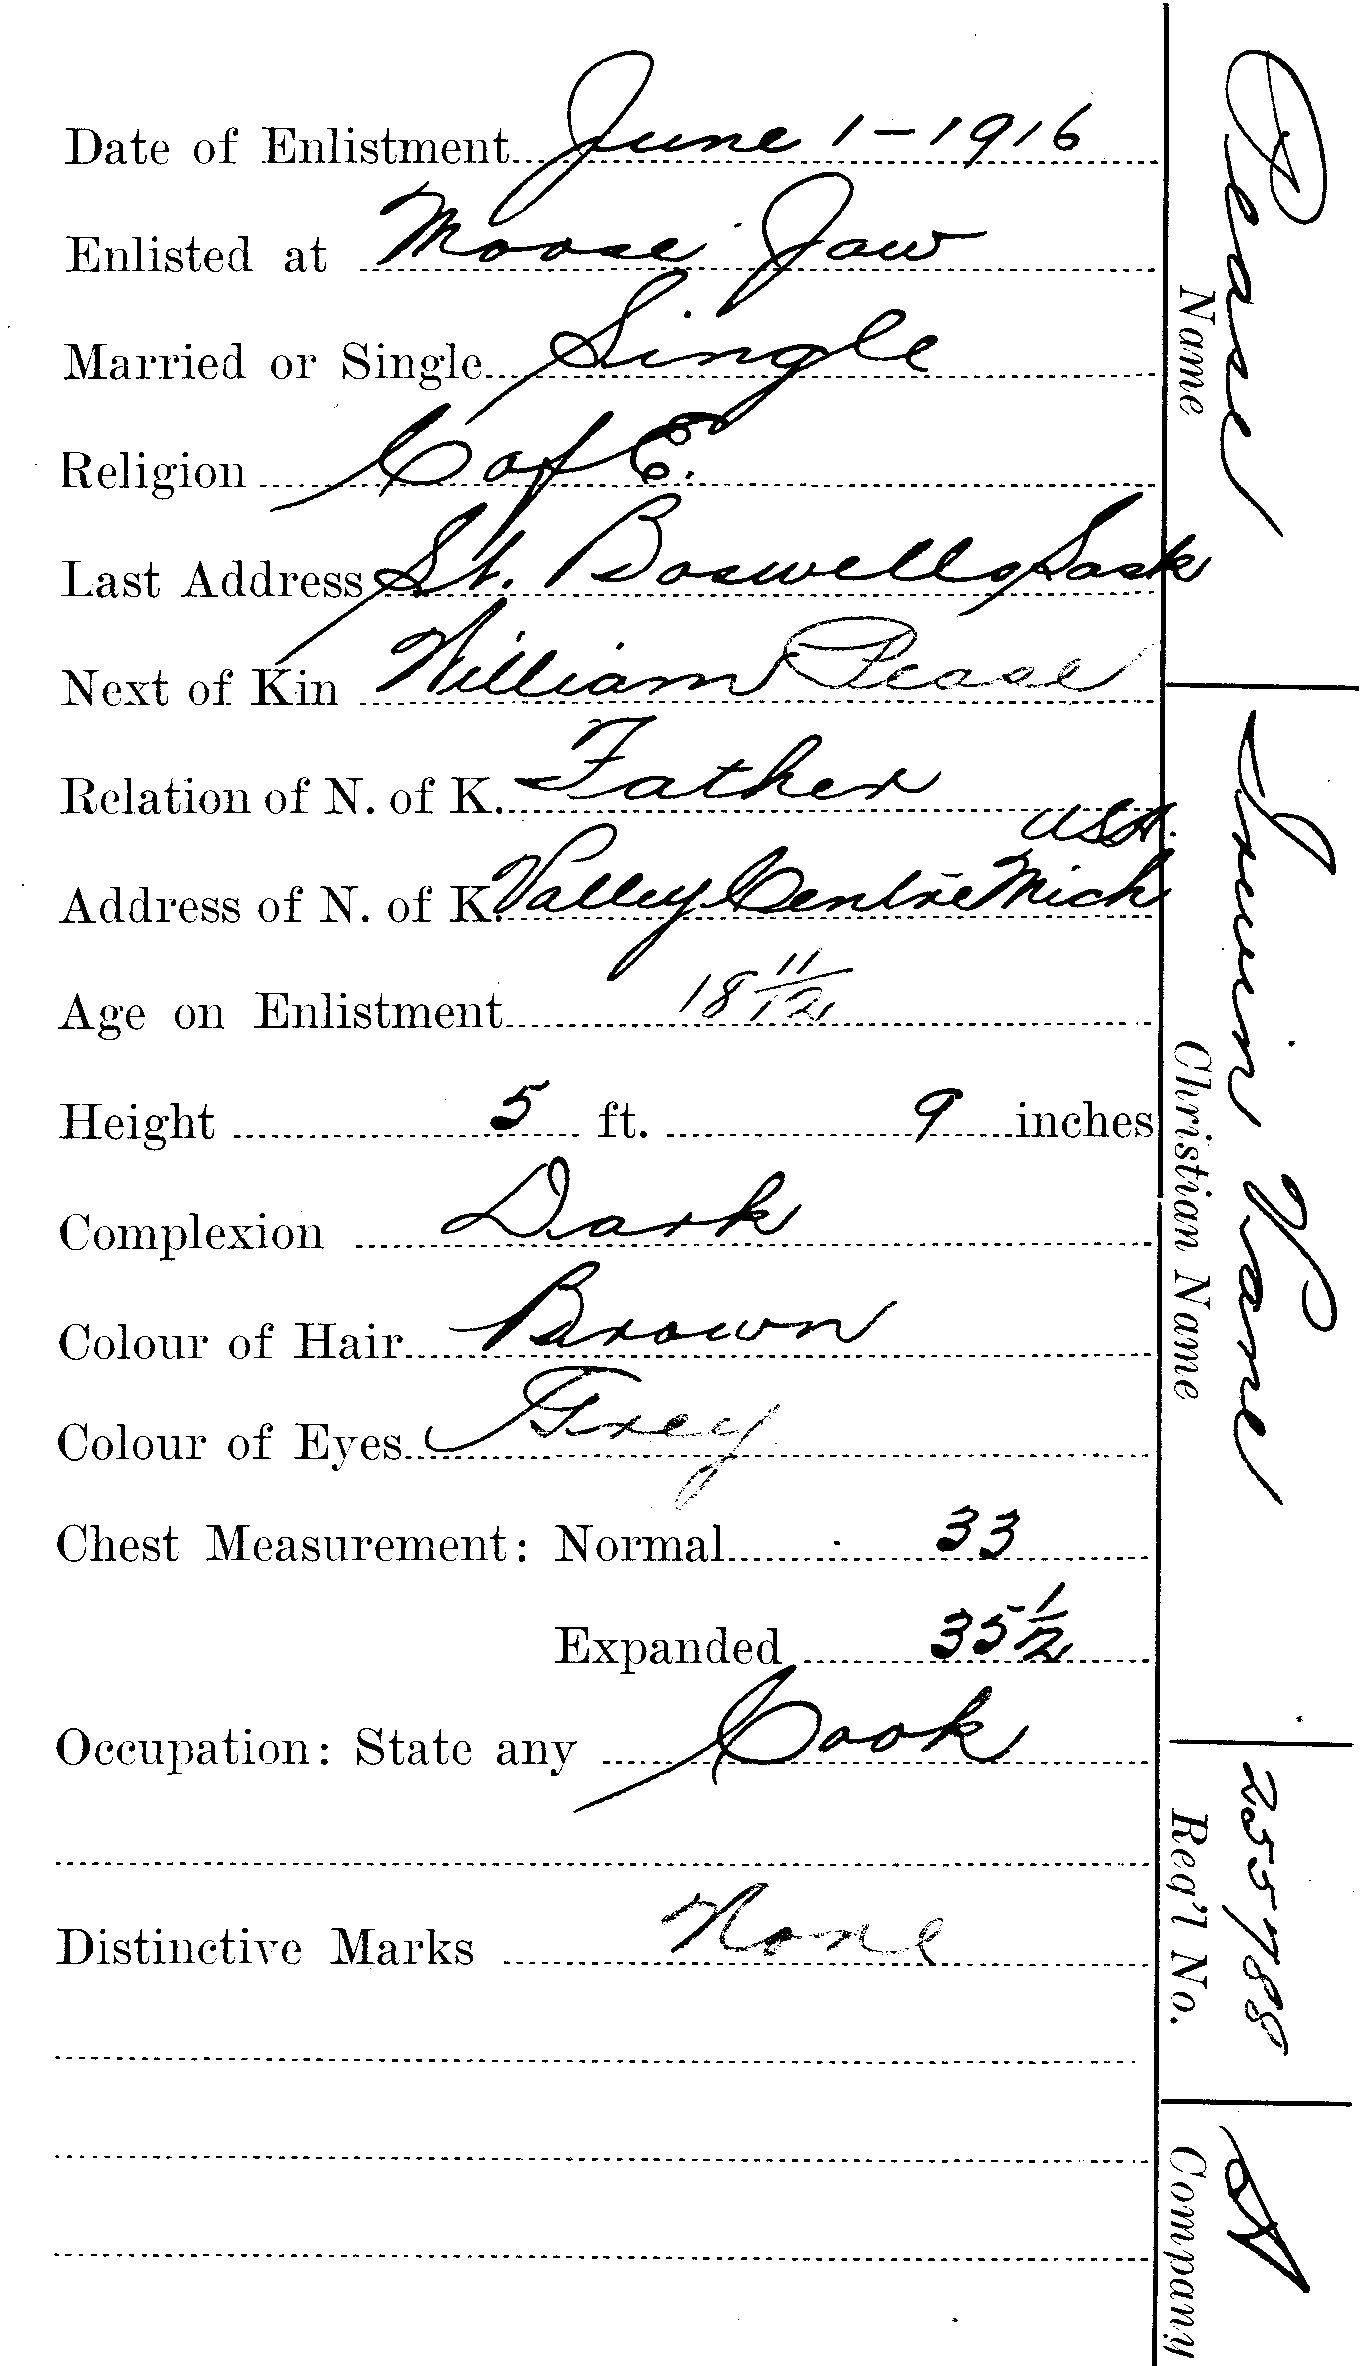 Date of Enlistment June 1-1916
Enlisted at Moose Jaw
Married or Single Single
Religion C of E.
Last Address St. Boswells, Sask
Next of Kin William Pease
Relation of N. of K. Father
USA.
Address of N. of K. Valley Centre Mich
Age on Enlistment 18 11/12
Height 5 ft. 9 inches
Complexion Dark
Colour of Hair Brown
Colour of Eyes Grey
Chest Measurement: Normal 33
Expanded 35 1/2
Occupation: State any Cook
Distinctive Marks None
Pease Irwin Vane 255788 A
Name Christian Name Reg'l No. Company